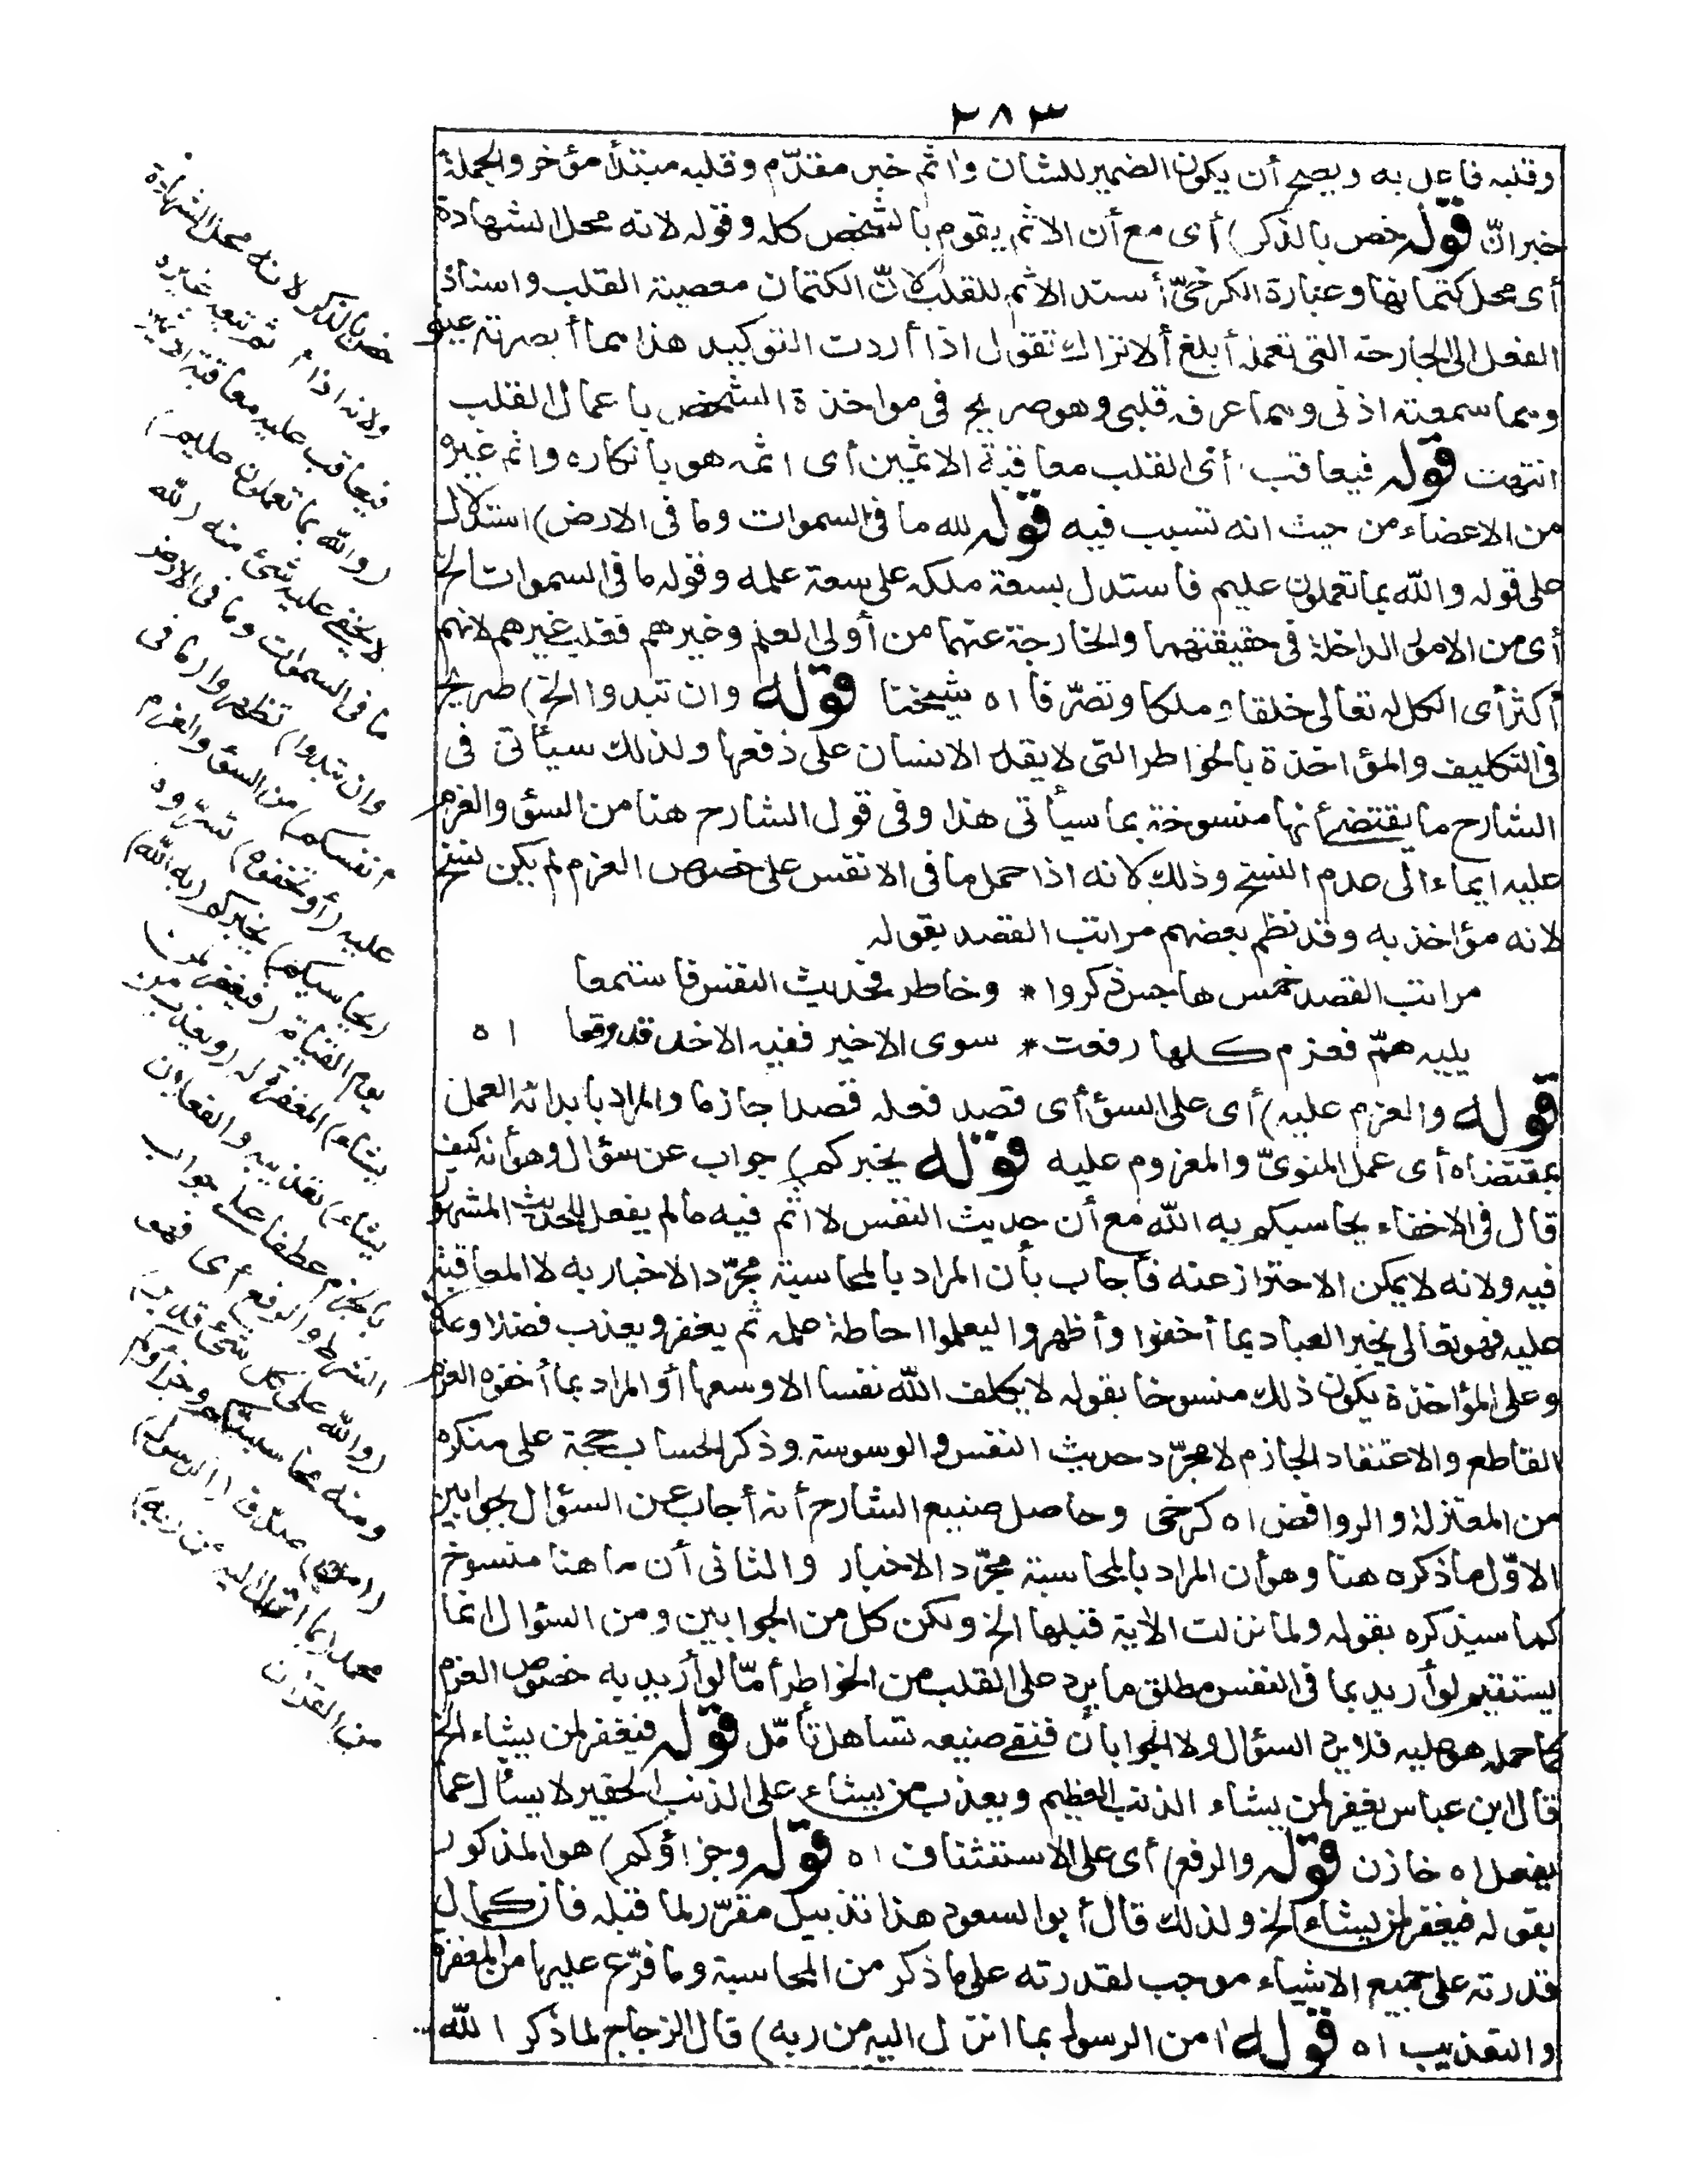 ٢٨٣
وقلبه فاعل به ويصح أن يكون الضمير للشان واثم خبر مقدّم وقلبه مبتدأ مؤخر والجملة
خبر انّ قوله خص بالذكر) أى مع أن الاثم يقوم بالشخص كله وقوله لانه محل الشهادة
أى محل كتمانها وعبارة الكرخىّ أسند الاثم للقلب لانّ الكتمان معصية القلب واسناد
الفعل الى الجارحة التى تعمله أبلغ ألا تراك تقول اذا أردت التوكيد هذا مما أبصرته عينى
ومما سمعته اذنى ومما عرفه قلبى وهو صريح فى مواخذة الشخص باعمال القلب
انتهت قوله فيعاقب أى القلب معاقبة الاثمين أى اثمه هو بانكاره واثم غيره
من الاعضاء من حيث انه تسبب فيه قوله لله ما فى السموات وما فى الارض) استدلال
على قوله والله بما تعملون عليم فاستدل بسعة ملكه على سعة علمه وقوله ما فى السموات الخ
أى من الامور الداخلة فى حقيقتهما والخارجة عنهما من أولى العلم وغيرهم فغلب غيرهم لانهم
أكثر أى الكل له تعالى خلقا وملكا وتصرّفا اه شيخنا قوله وان تبدوا الخ) صريح
فى التكليف والمؤاخذة بالخواطر التى لا يقدر الانسان على دفعها ولذلك سيأتى فى
الشارح ما يقتضى أنها منسوخة بما سيأتى هذا وفى قول الشارح هنا من السؤ والعزم
عليه ايماء الى عدم النسخ وذلك لانه اذا حمل ما فى الانفس على خصوص العزم لم يكن نسخ
لانه مؤاخذ به وقد نظم بعضهم مراتب القصد بقوله
مراتب القصد خمس هاجس ذكروا * وخاطر فحديث النفس فاستمعا
يليه همّ فعزم كلها رفعت * سوى الاخير ففيه الاخذ قد وقعا اه
قوله والعزم عليه) أى على السؤ أى قصد فعله قصدا جازما والمراد بابدائه العمل
بمقتضاه أى عمل المنوىّ والمعزوم عليه قوله يخبركم) جواب عن سؤال وهو أنه كيف
قال فى الاخفاء يحاسبكم به الله مع أن حديث النفس لا اثم فيه ما لم يفعل للحديث المشهور
فيه ولانه لا يمكن الاحتراز عنه فأجاب بأن المراد بالمحاسبة مجرّد الاخبار به لا المعاقبة
عليه فهو تعالى يخبر العباد بما أخفوا وأظهروا ليعلموا احاطة علمه ثم يغفر ويعذب فضلا وعدلا
وعلى المؤاخذة يكون ذلك منسوخا بقوله لا يكلف الله نفسا الا وسعها أو المراد بما أخفوه العزم
القاطع والاعتقاد الجازم لا مجرّد حديث النفس والوسوسة وذكر الحساب حجة على منكره
من المعتزلة والروافض اه كرخى وحاصل صنيع الشارح أنه أجاب عن السؤال بجوابين
الاوّل ما ذكره هنا وهو أن المراد بالمحاسبة مجرّد الاخبار والثانى أن ما هنا منسوخ
كما سيذكره بقوله ولما نزلت الآية قبلها الخ ولكن كل من الجوابين ومن السؤال انما
يستقيم لو أريد بما فى النفس مطلق ما يرد على القلب من الخواطر أمّا لو أريد به خصوص العزم
كما حمله هو عليه فلا يرد السؤال ولا الجوابان ففى صنيعه تساهل تأمّل قوله فيغفر لمن يشاء الخ
قال ابن عباس يغفر لمن يشاء الذنب العظيم ويعذب من يشاء على الذنب الحقير لا يسأل عما
يفعل اه خازن قوله والرفع) أى على الاستئناف اه قوله وجزاؤكم) هو المذكور
بقوله فيغفر لمن يشاء الخ ولذلك قال أبو السعود هذا تذييل مقرّر لما قبله فان كمال
قدرته على جميع الاشياء موجب لقدرته على ما ذكر من المحاسبة وما فرّع عليها من المغفرة
والتعذيب اه قوله امن الرسول بما انزل اليه من ربه) قال الزجاج لما ذكر الله
خص بالذكر لانه محل الشهادة
ولانه اذا اثم تبعه غيره
فيعاقب عليه معاقبة الاثمين
(والله بما تعملون عليم)
لا يخفى عليه شئ منه (لله
ما فى السموات وما فى الارض
وان تبدوا) تظهروا (ما فى
أنفسكم) من السؤ والعزم
عليه (أو تخفوه) تسرّوه
(يحاسبكم) يخبركم (به الله)
يوم القيامة (فيغفر لمن
يشاء) المغفرة له (ويعذب من
يشاء) تعذيبه والفعلان
بالجزم عطفا على جواب
الشرط والرفع أى فهو
(والله على كل شئ قدير)
ومنه محاسبتكم وجزاؤكم
(امن) صدّق (الرسول)
محمد (بما انزل اليه من ربه)
من القرآن